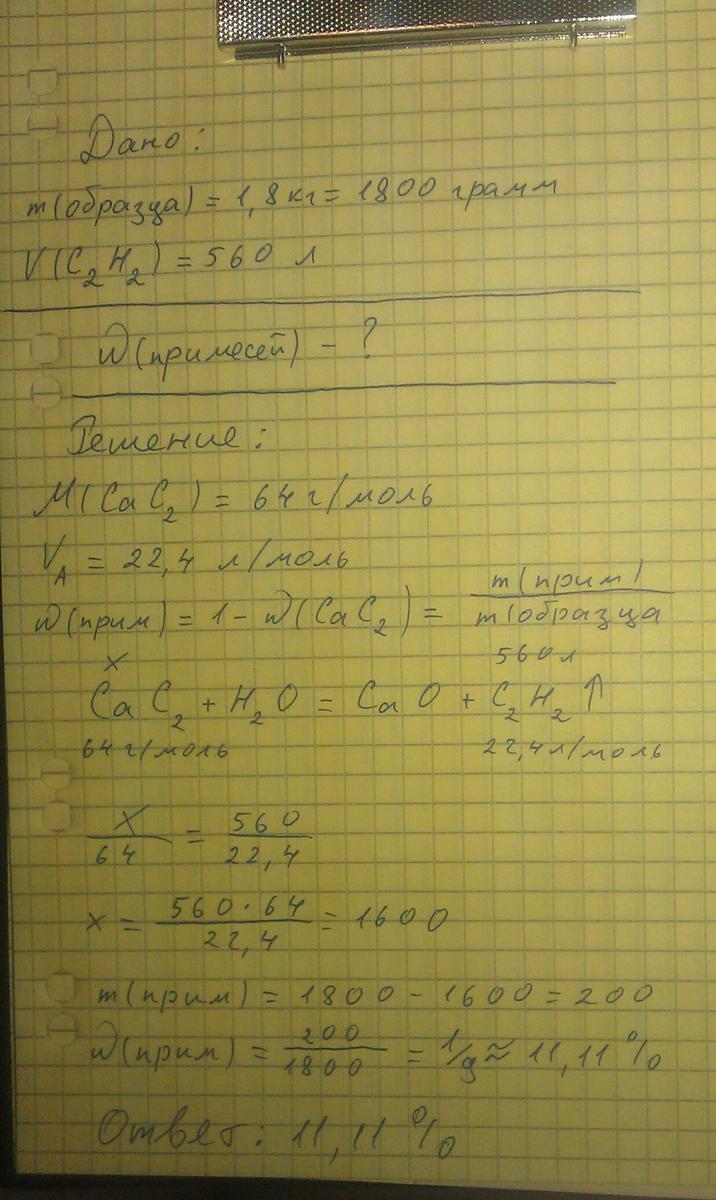 Дано:
m(образца) = 1,8 кг = 1800 грамм
V(C₂H₂) = 560 л
W(примесей) - ?
Решение:
M(CaC₂) = 64 г/моль
V_A = 22,4 л/моль
W(прим) = 1 - W(CaC₂) = m(прим) / m(образца
x 560 л
CaC₂ + H₂O = CaO + C₂H₂↑
64 г/моль 22,4 л/моль
x/64 = 560/22,4
x = 560·64/22,4 = 1600
m(прим) = 1800 - 1600 = 200
W(прим) = 200/1800 = 1/9 ≈ 11,11 %
Ответ: 11,11 %